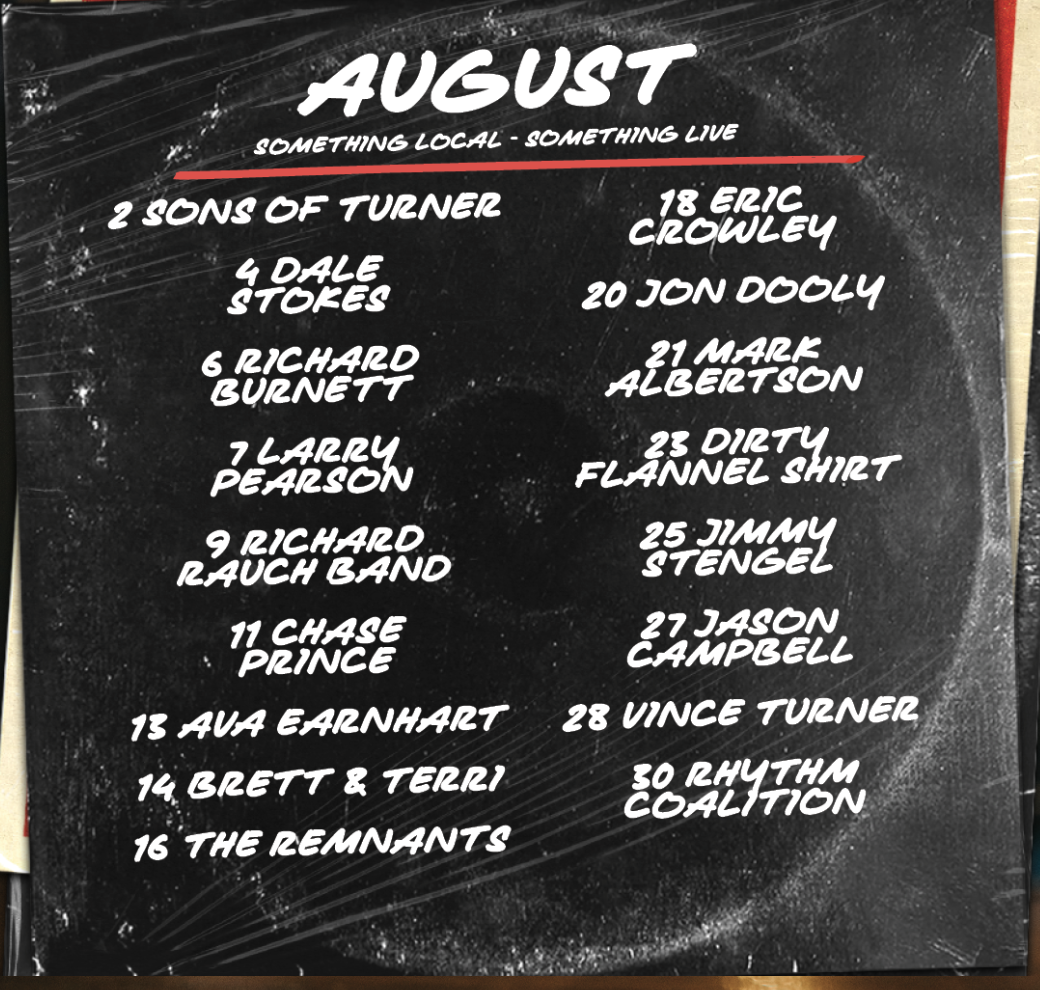 AUGUST
SOMETHING LOCAL - SOMETHING LIVE
2 SONS OF TURNER
4 DALE
STOKES
6 RICHARD
BURNETT
7 LARRY
PEARSON
9 RICHARD
RAUCH BAND
11 CHASE
PRINCE
13 AVA EARNHART
14 BRETT & TERRI
16 THE REMNANTS
18 ERIC
CROWLEY
20 JON DOOLY
21 MARK
ALBERTSON
23 DIRTY
FLANNEL SHIRT
25 JIMMY
STENGEL
27 JASON
CAMPBELL
28 VINCE TURNER
30 RHYTHM
COALITION